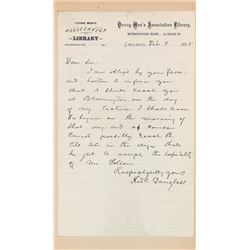 YOUNG MEN'S
ASSOCIATION
LIBRARY
Young Men's Association Library,
METROPOLITAN BLOCK,
CHICAGO, Feb. 8 186
Dear Sir:
I am obliged by your favor
and hasten to inform you
that I shall reach you
at Bloomington on the day
of my lecture. I shall leave
on the morning of
that day and of course
cannot possibly reach B.
till late in the day. Shall
be glad to accept the hospitality
of Mr. Folsom
Respectfully yours
Fredk Douglass